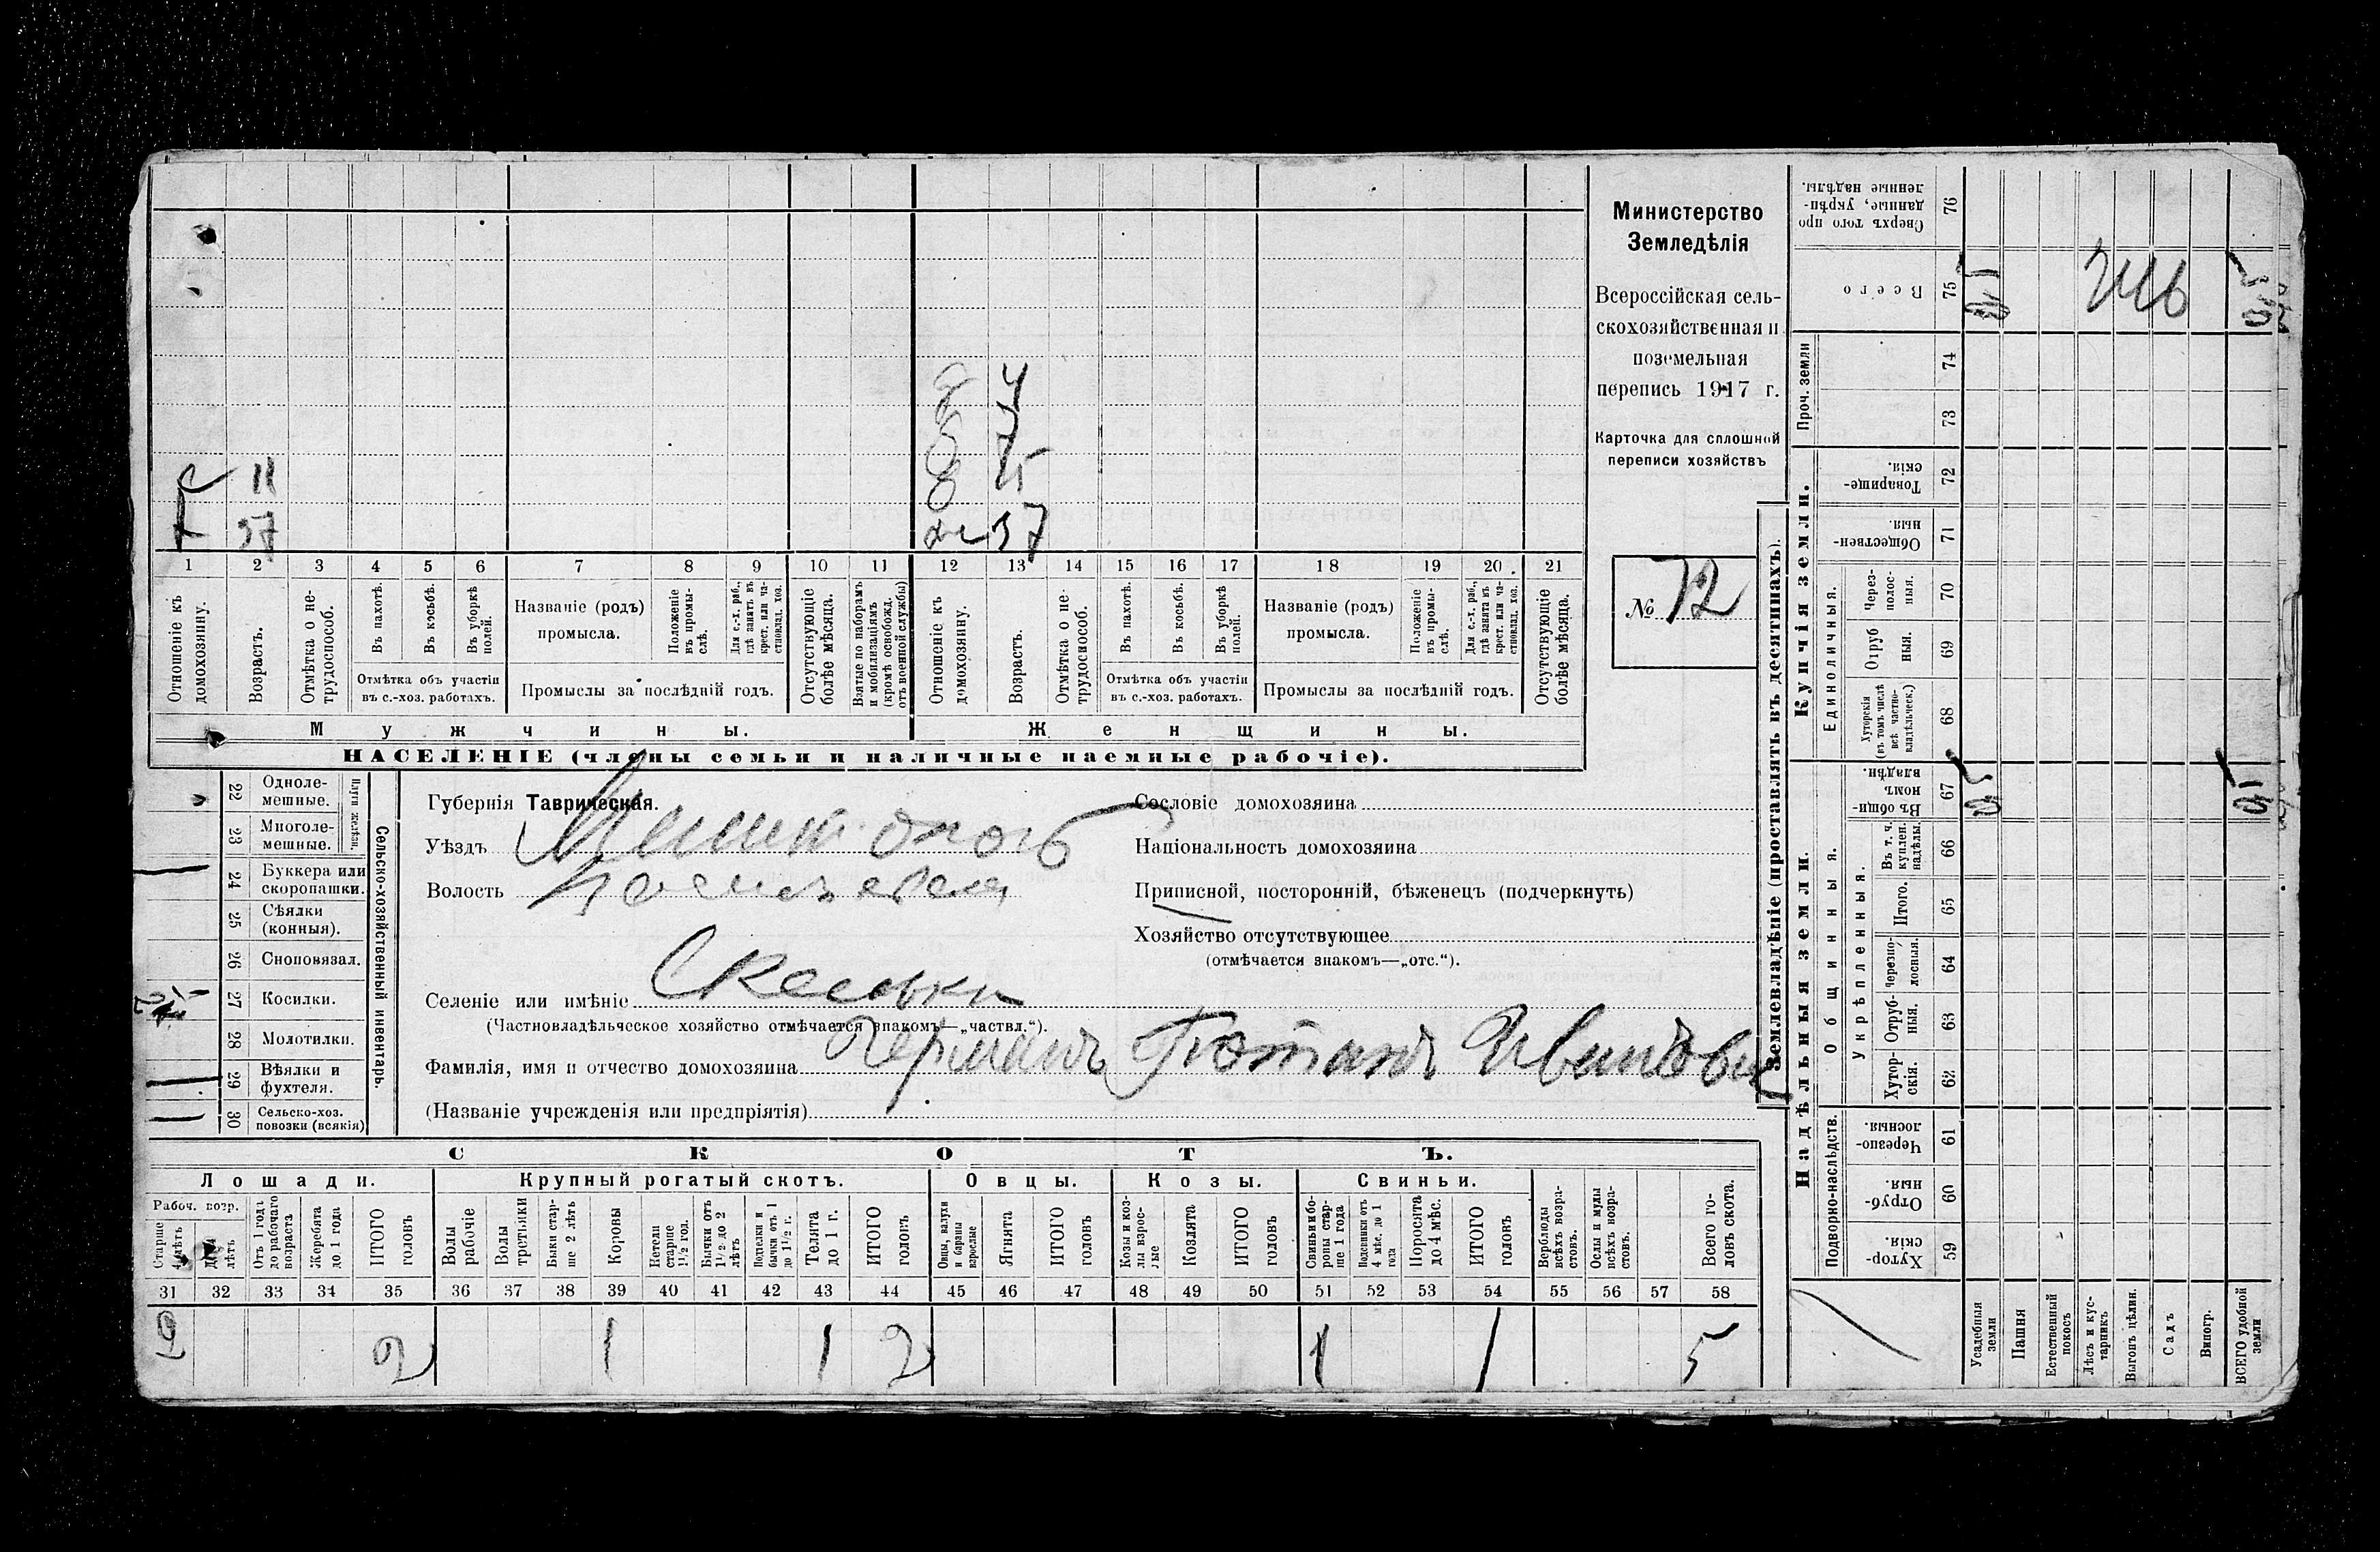 11
37
8 4
8 7
8 15
ж 37
1 2 3 4 5 6 7 8 9 10 11 12 13 14 15 16 17 18 19 20 21
Отношеніе къ домохозяину.
Возрастъ.
Отмѣтка о нетрудоспособ.
Въ пахотѣ.
Въ косьбѣ.
Въ уборкѣ полей.
Отмѣтка объ участіи въ с.-хоз. работахъ.
Названіе (родъ) промысла.
Положеніе въ промыслѣ.
Для с.-х. раб., гдѣ занятъ въ крест. или частновлад. хоз.
Промыслы за послѣдній годъ.
Отсутствующіе болѣе мѣсяца.
Взятые по наборамъ и мобилизаціямъ (кромѣ освобожд. отъ военной службы)
Отношеніе къ домохозяину.
Возрастъ.
Отмѣтка о нетрудоспособ.
Въ пахотѣ.
Въ косьбѣ.
Въ уборкѣ полей.
Отмѣтка объ участіи въ с.-хоз. работахъ.
Названіе (родъ) промысла.
Положеніе въ промыслѣ.
Для с.-х. раб., гдѣ занята въ крест. или частновлад. хоз.
Промыслы за послѣдній годъ.
Отсутствующіе болѣе мѣсяца.
Мужчины.
Женщины.
НАСЕЛЕНІЕ (члены семьи и наличные наемные рабочіе).
Министерство
Земледѣлія
Всероссійская сель-
скохозяйственная и
поземельная
перепись 1917 г.
Карточка для сплошной
переписи хозяйствъ
№ 72
22 Одноле-
мешные.
23 Многоле-
мешные.
Плуги желѣзн.
24 Буккера или
скоропашки.
25 Сѣялки
(конныя).
26 Сноповязал.
27 Косилки.
28 Молотилки.
29 Вѣялки и
фухтеля.
30 Сельско-хоз.
повозки (всякія)
Сельско-хозяйственный инвентарь.
Губернія Таврическая.
Уѣздъ
Волость
Селеніе или имѣніе Скельки
(Частновладѣльческое хозяйство отмѣчается знакомъ—„частвл.“).
Фамилія, имя и отчество домохозяина Иванович
(Названіе учрежденія или предпріятія)
Сословіе домохозяина
Національность домохозяина
Приписной, посторонній, бѣженецъ (подчеркнуть)
Хозяйство отсутствующее
(отмѣчается знакомъ—„отс.“).
СКОТЪ.
Лошади.
Крупный рогатый скотъ.
Овцы.
Козы.
Свиньи.
Рабоч. возр.
Старше 4 лѣтъ
лѣтъ
Отъ 1 года до рабочаго возраста
Жеребята до 1 года
ИТОГО головъ
Волы рабочіе
Волы третьяки
Быки старше 2 лѣтъ
Коровы
Нетели старше 1½ год.
Бычки отъ 1½ до 2 лѣтъ
бычки отъ 1 до 1½ г.
Телята до 1 г.
ИТОГО головъ
Овцы, валухи и бараны взрослые
Ягнята
ИТОГО головъ
Козы и козлы взрослые
Козлята
ИТОГО головъ
Свиньи и боровы старше 1 года
Подсвинки отъ 4 мѣс. до 1 года
Поросята до 4 мѣс.
ИТОГО головъ
Верблюды всѣхъ возрастовъ.
Ослы и мулы всѣхъ возрастовъ.
Всего головъ скота.
31 32 33 34 35 36 37 38 39 40 41 42 43 44 45 46 47 48 49 50 51 52 53 54 55 56 57 58
2 2 1 1 2 1 1 5
Землевладѣніе (проставлять въ десятинахъ).
Надѣльныя земли.
Купчія земли.
Проч. земли
Общинныя.
Укрѣпленныя.
Подворно-наслѣдств.
Единоличныя.
Сверхъ того проданные, укрѣпленные надѣлы. 76
Всего 75
74
73
Товарищескія. 72
Общественныя. 71
Черезполосныя. 70
Отрубныя. 69
Хуторскія (въ томъ числѣ всѣ частновладѣльческ.) 68
Въ общинномъ владѣн. 67
Въ т. ч. куплен. надѣлы. 66
Итого. 65
Черезполосныя. 64
Отрубныя. 63
Хуторскія. 62
Черезполосныя. 61
Отрубныя. 60
Хуторскія. 59
Усадебныя земли
Пашня
Естественный покосъ
Лѣсъ и кустарникъ
Выгонъ цѣлин.
Садъ
Виногр.
ВСЕГО удобной земли